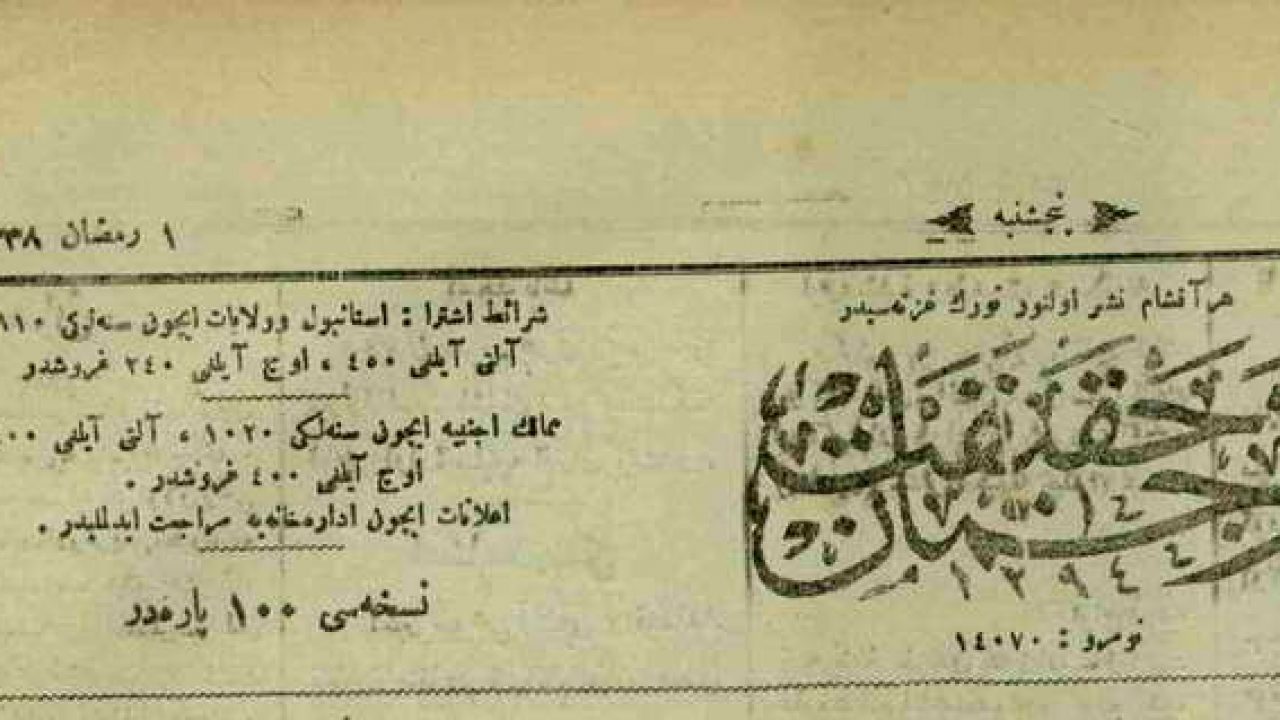 پنجشنبه
١ رمضان
هر آقشام نشر اولنور تورك غزته‌سیدر
ترجمان حقیقت
١٢٩٤
نومرو : ١٤٠٧٠
شرائط اشترا : استانبول وولایات ایچون سنه‌لكی
آلتی آیلغی ٤٥٠ ، اوچ آیلغی ٢٤٠ غروشدر
ممالك اجنبیه ایچون سنه‌لكی ١٠٢٠ ، آلتی آیلغی
اوچ آیلغی ٤٠٠ غروشدر .
اعلانات ایچون اداره‌خانه‌یه مراجعت ایدلملیدر .
نسخه‌سی ١٠٠ پاره‌در